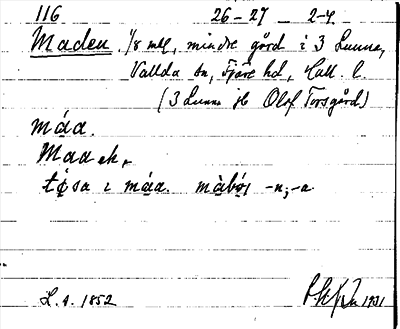 116 26-27 2-4.
Maden. 1/8 mtl, mindre gård i 3 Lunna,
Vallda sn, Fjäre hd, Hall. l.
(3 Lunna jb Olof Torsgård)
máa.
Maaek,
i máa. -n; -a
L. 4. 1852
1931